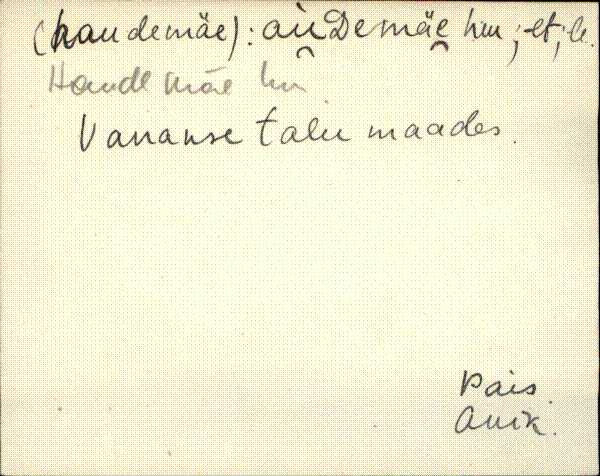 (haudemäe): aὺDemäe hm; -et; le.
Haudemäe hm
Vananse talu maades.
Pais.
Anik.